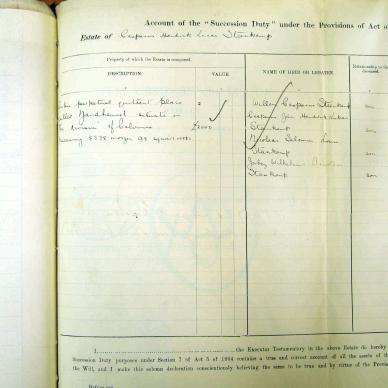 Account of the "Succession Duty" under the Provisions of Act of
Estate of Casparus Hendrick Lucas Steenkamp
Property of which the Estate is composed.
DESCRIPTION.
VALUE
NAME OF HEIR OR LEGATEE.
Relationship to the deceased.
perpetual quitrent place
called situate in
the division of Calvinia
measuring 8338 morgen
£2000
Willem Casparus Steenkamp
son
Casparus Jan Hendrick
Steenkamp
son
Nicolaas Salomon Louw
Steenkamp
son
Wilhelm
Steenkamp
son
I, the Executor Testamentary in the above Estate do hereby
Succession Duty purposes under Section 7 of Act 5 of 1864 contains a true and correct account of all the assets of the
the Will, and I make this solemn declaration conscientiously believing the same to be true and by virtue of the Provi